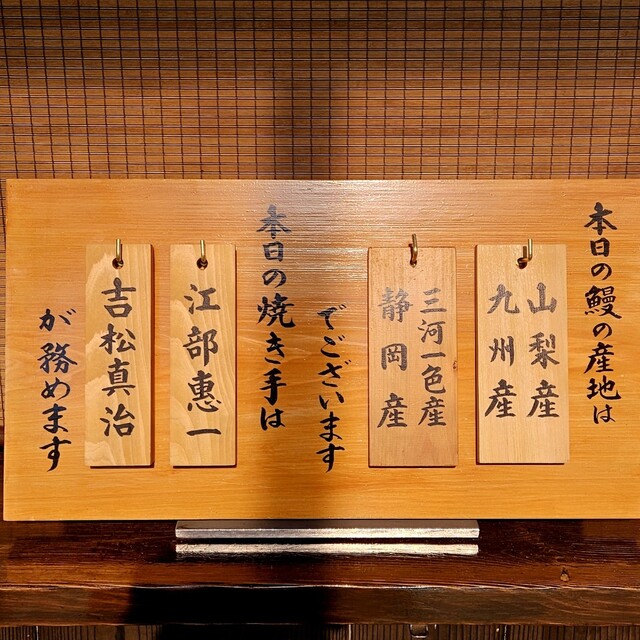 本日の鰻の産地は
山梨産
九州産
三河一色産
静岡産
でございます
本日の焼き手は
江部惠一
吉松真治
が務めます